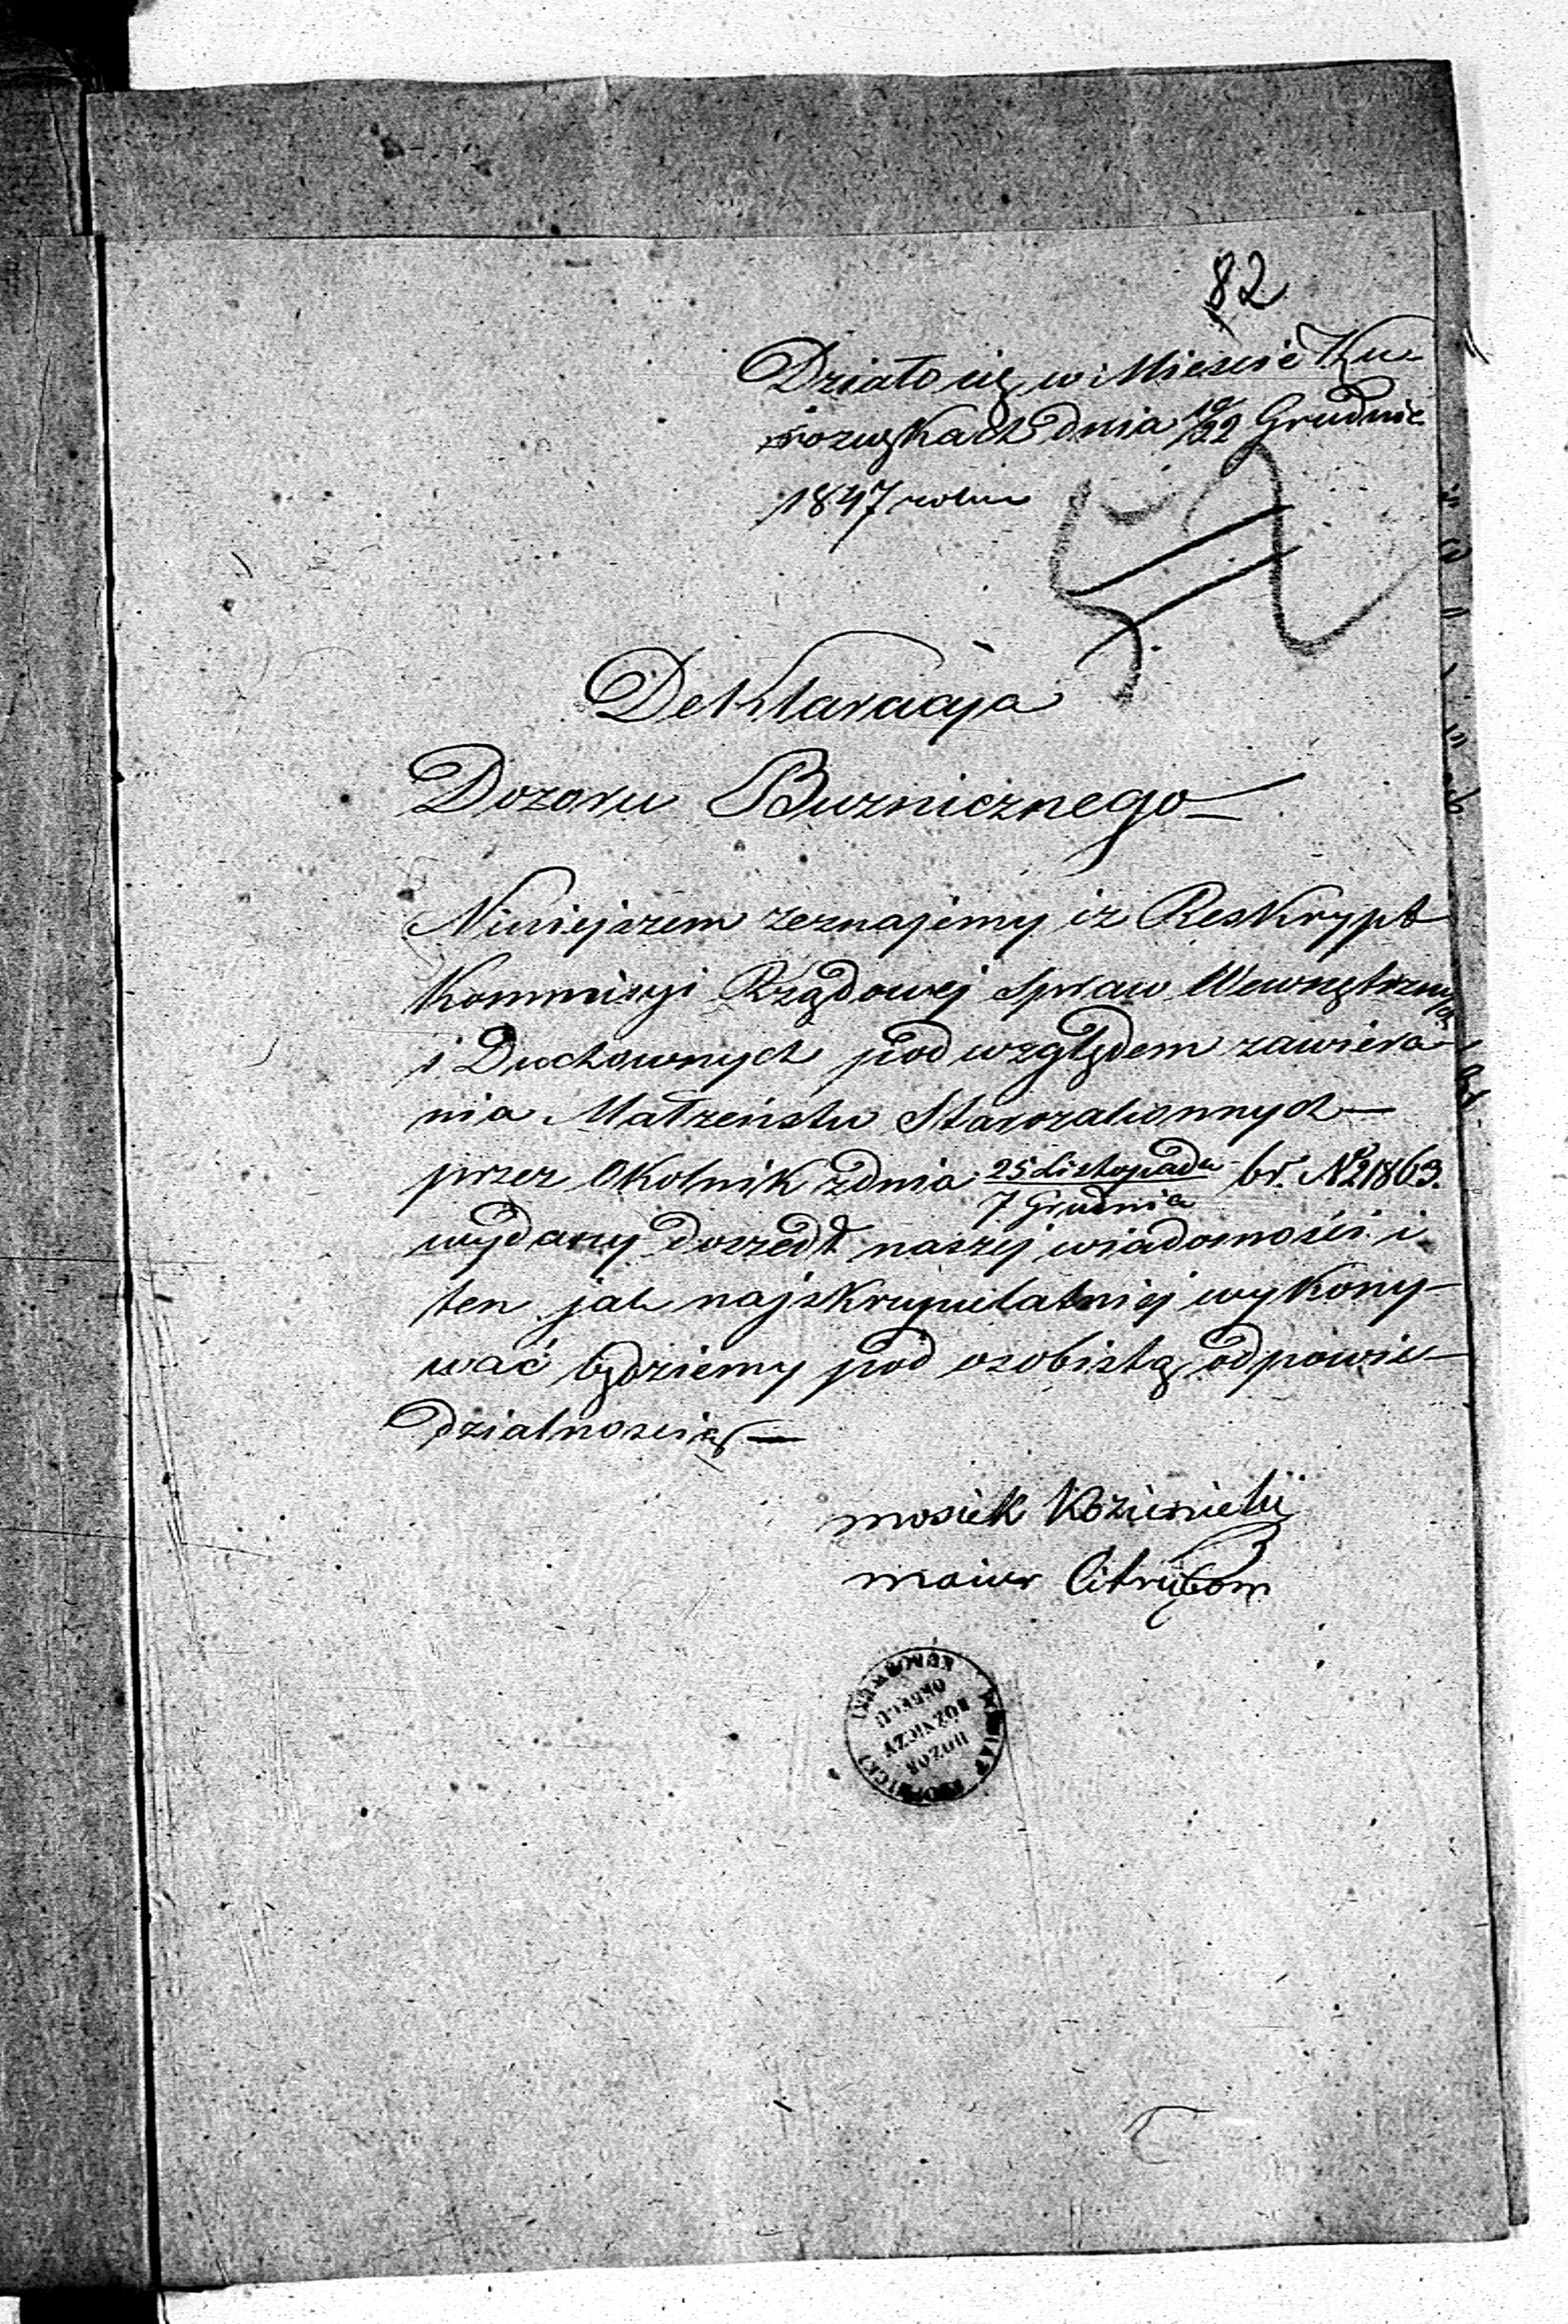 82
Działo się w Mieście Ku
rozwękach dnia 10/22 Grudnia
1847 roku
Deklaracyja
Dozoru Buznicznego
Niniejszem zeznajemy iz Reskrypt
Kommisyi Rządowej Spraw Wewnętrznych
i Duchownych pod względem zawiera-
nia Małzeństw Starozakonnych
przez Okolnik z dnia 25 Listopada / 7 Grudnia br. No 21863.
wydany doszedł naszej wiadomości i
ten jak najskrupulatniej wykony-
wać będziemy pod osobistą odpowie-
dzialnoscią
mosiek
maier Citrybom
DOZÓR
BOŻNICZY
OKRĘGU